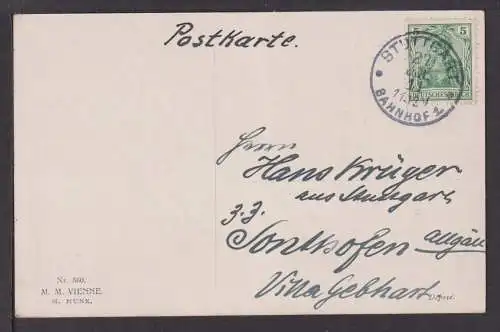 Postkarte.
5
STUTTGART
BAHNHOF 1
Herrn
Hans Krüger
aus Stuttgart
z.Z.
Sonthofen Allgäu
Villa Gebhart
Nr. 560.
M. M. VIENNE.
M. MUNK.